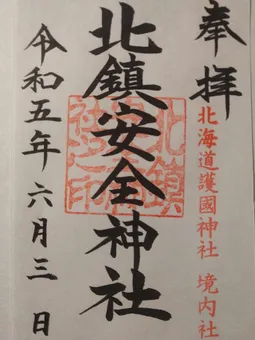 奉拝
北海道護國神社 境内社
北鎮安全神社
令和五年六月三日